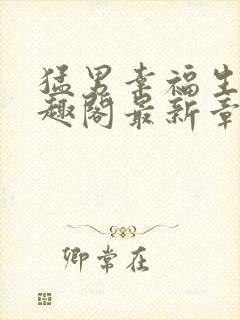 猛男幸福生
趣阁最新章
卿常在